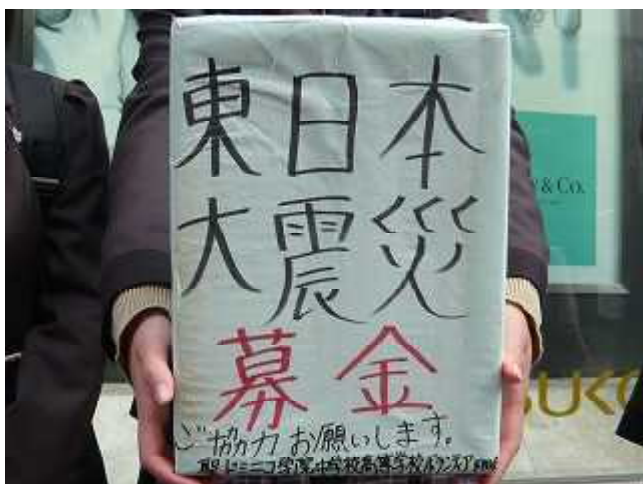 東日本
大震災
募金
ご協力お願いします。
聖ドミニコ学院中学校高等学校ボランティア
& Co.